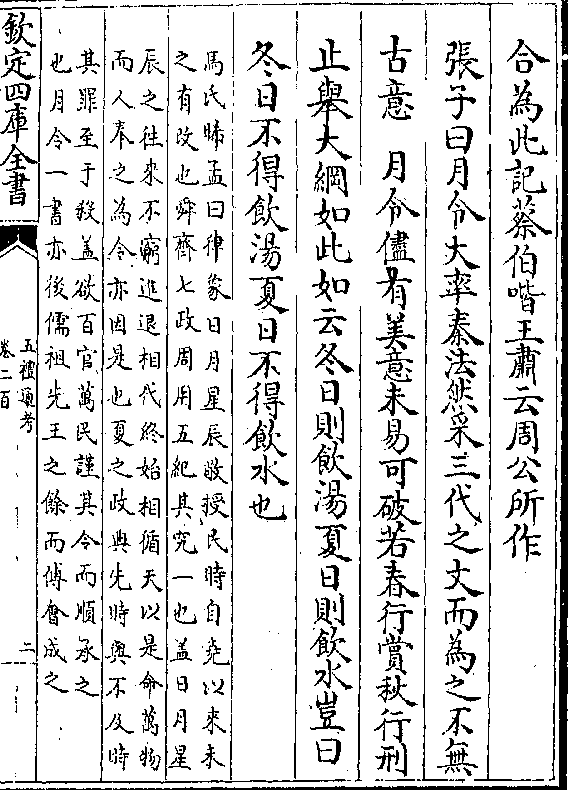 合為此記蔡伯喈王肅云周公所作
張子曰月令大率秦法然采三代之文而為之不無
古意　月令儘有美意未易可破若春行賞秋行刑
止舉大綱如此如云冬日則飲湯夏日則飲水豈曰
冬日不得飲湯夏日不得飲水也
馬氏晞孟曰律象日月星辰敬授民時自堯以來未
之有改也舜齊七政周用五紀其究一也蓋日月星
辰之往來不窮進退相代終始相循天以是命萬物
而人奉之為令亦因是也夏之政典先時與不及時
其罪至于殺蓋欲百官萬民謹其令而順承之
也月令一書亦後儒祖先王之餘而傅會成之
欽定四庫全書
五禮通考
卷二百
二